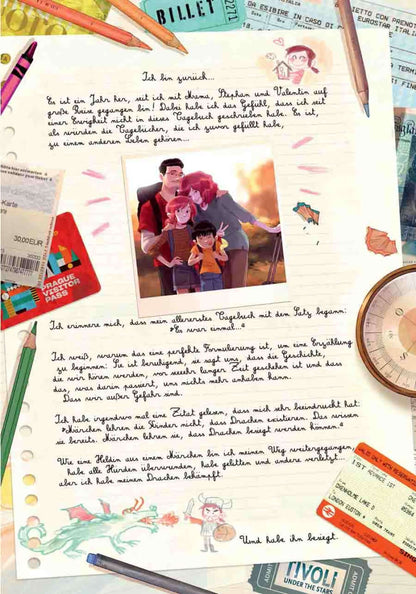 BILLET
2271
DA ESIBIRE IN CASO DI
EUROSTAR ITALIA
Ich bin zurück...
Es ist ein Jahr her, seit ich mit Mama, Stephan und Valentin auf
große Reise gegangen bin! Dabei habe ich das Gefühl, dass ich seit
einer Ewigkeit nicht in dieses Tagebuch geschrieben habe. Es ist,
als würden die Tagebücher, die ich zuvor gefüllt habe,
zu einem anderen Leben gehören...
-Karte
30,00EUR
PRAGUE
VISITOR
PASS
Ich erinnere mich, dass mein allererstes Tagebuch mit dem Satz begann:
»Es war einmal...«
Ich weiß, warum das eine perfekte Formulierung ist, um eine Erzählung
zu beginnen: Sie ist beruhigend, sie sagt uns, dass die Geschichte,
die wir hören werden, vor seeehr langer Zeit geschehen ist und dass
das, was darin passiert, uns nichts mehr anhaben kann.
Dass wir außer Gefahr sind.
Ich habe irgendwo mal eine Zitat gelesen, dass mich sehr beeindruckt hat:
»Märchen lehren die Kinder nicht, dass Drachen existieren. Das wissen
sie bereits. Märchen lehren sie, dass Drachen besiegt werden können.«
Wie eine Heldin aus einem Märchen bin ich meinen Weg weitergegangen,
habe alle Hürden überwunden, habe gelitten und andere verletzt...
aber ich habe meinen Drachen bekämpft.
Und habe ihn besiegt.
1ST ADVANCE 1ST
CHENHOLME LAKE D
LONDON EUSTON
ADMIT
TIVOLI
UNDER THE STARS